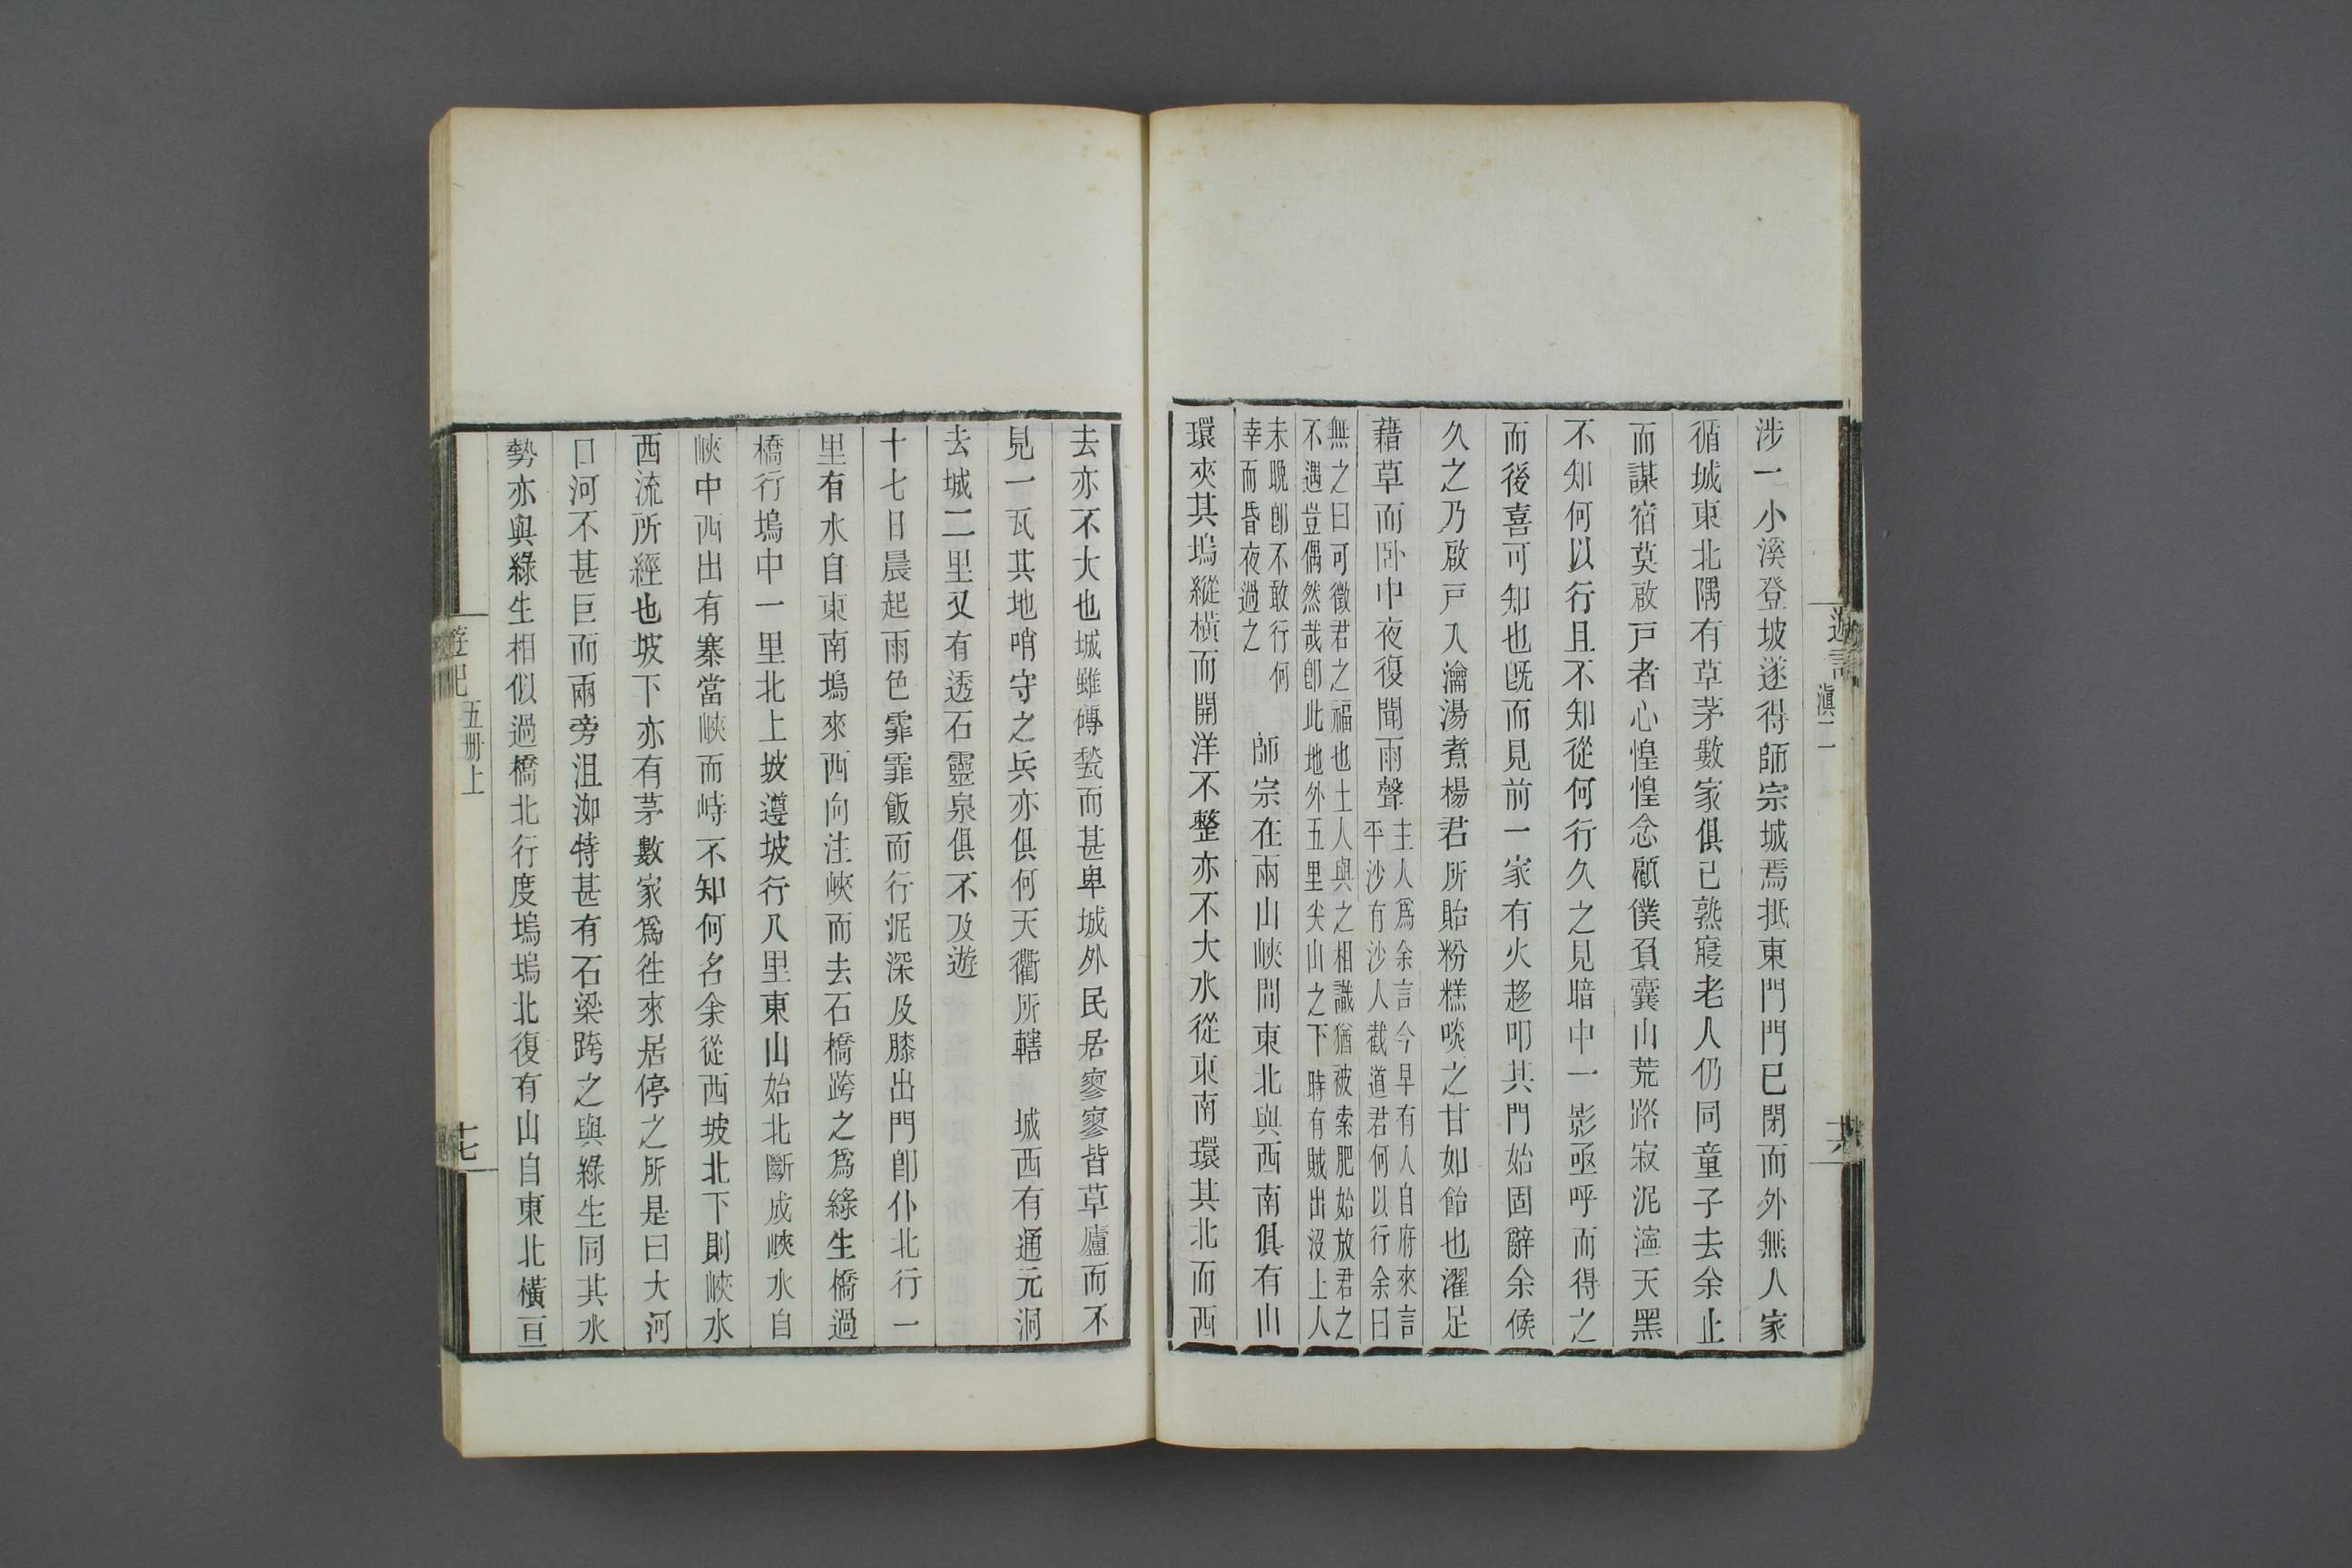 遊記
滇二
涉一小溪登坡遂得師宗城焉抵東門門已閉而外無人家
循城東北隅有草茅數家俱已熟寢老人仍同童子去余止
而謀宿莫啟戸者心惶惶念顧僕負囊山荒路寂泥濘天黑
不知何以行且不知從何行久之見暗中一影亟呼而得之
而後喜可知也旣而見前一家有火趨叩其門始固辭余候
久之乃啟戸入瀹湯煮楊君所貽粉糕啖之甘如飴也濯足
藉草而卧中夜復聞雨聲
主人爲余言今早有人自府來言
平沙有沙人截道君何以行余曰
無之曰可徵君之福也土人與之相識猶被索肥始放君之
不遇豈偶然哉卽此地外五里尖山之下時有賊出沒土人
未晚卽不敢行何
幸而昏夜過之
師宗在兩山峽間東北與西南俱有山
環夾其塢縱橫而開洋不整亦不大水從東南環其北而西
去亦不大也城雖磚甃而甚卑城外民居寥寥皆草廬而不
見一瓦其地哨守之兵亦俱何天衢所轄　城西有通元洞
去城二里又有透石靈泉俱不及遊
十七日晨起雨色霏霏飯而行泥深及膝出門卽仆北行一
里有水自東南塢來西向注峽而去石橋跨之爲綠生橋過
橋行塢中一里北上坡遵坡行八里東山始北斷成峽水自
峽中西出有寨當峽而峙不知何名余從西坡北下則峽水
西流所經也坡下亦有茅數家爲往來居停之所是曰大河
口河不甚巨而兩旁沮洳特甚有石梁跨之與綠生同其水
勢亦與綠生相似過橋北行度塢塢北復有山自東北橫亘
遊記
五册上
十七